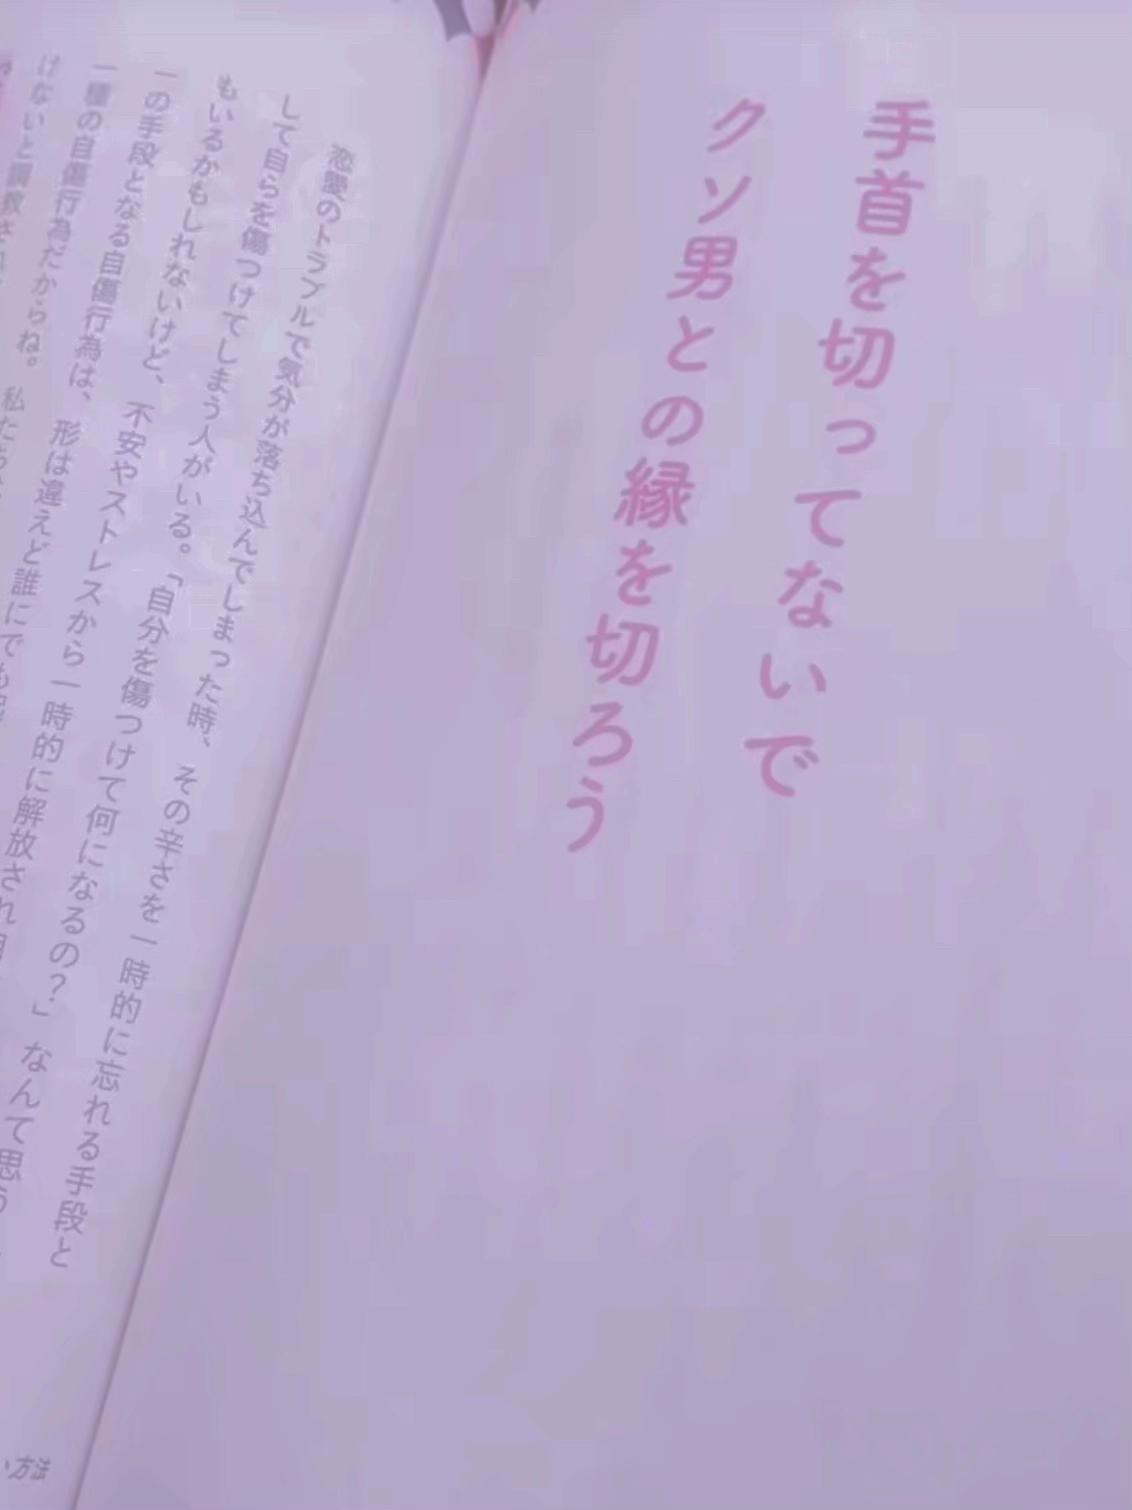 手首を切ってないで
クソ男との縁を切ろう
恋愛のトラブルで気分が落ち込んでしまった時、その辛さを一時的に忘れる手段と
して自らを傷つけてしまう人がいる。「自分を傷つけて何になるの?」なんて思う
もいるかもしれないけど、不安やストレスから一時的に解放され
一の手段となる自傷行為は、形は違えど誰にでも
一種の自傷行為だからね。私たち
けないと調教され
方法